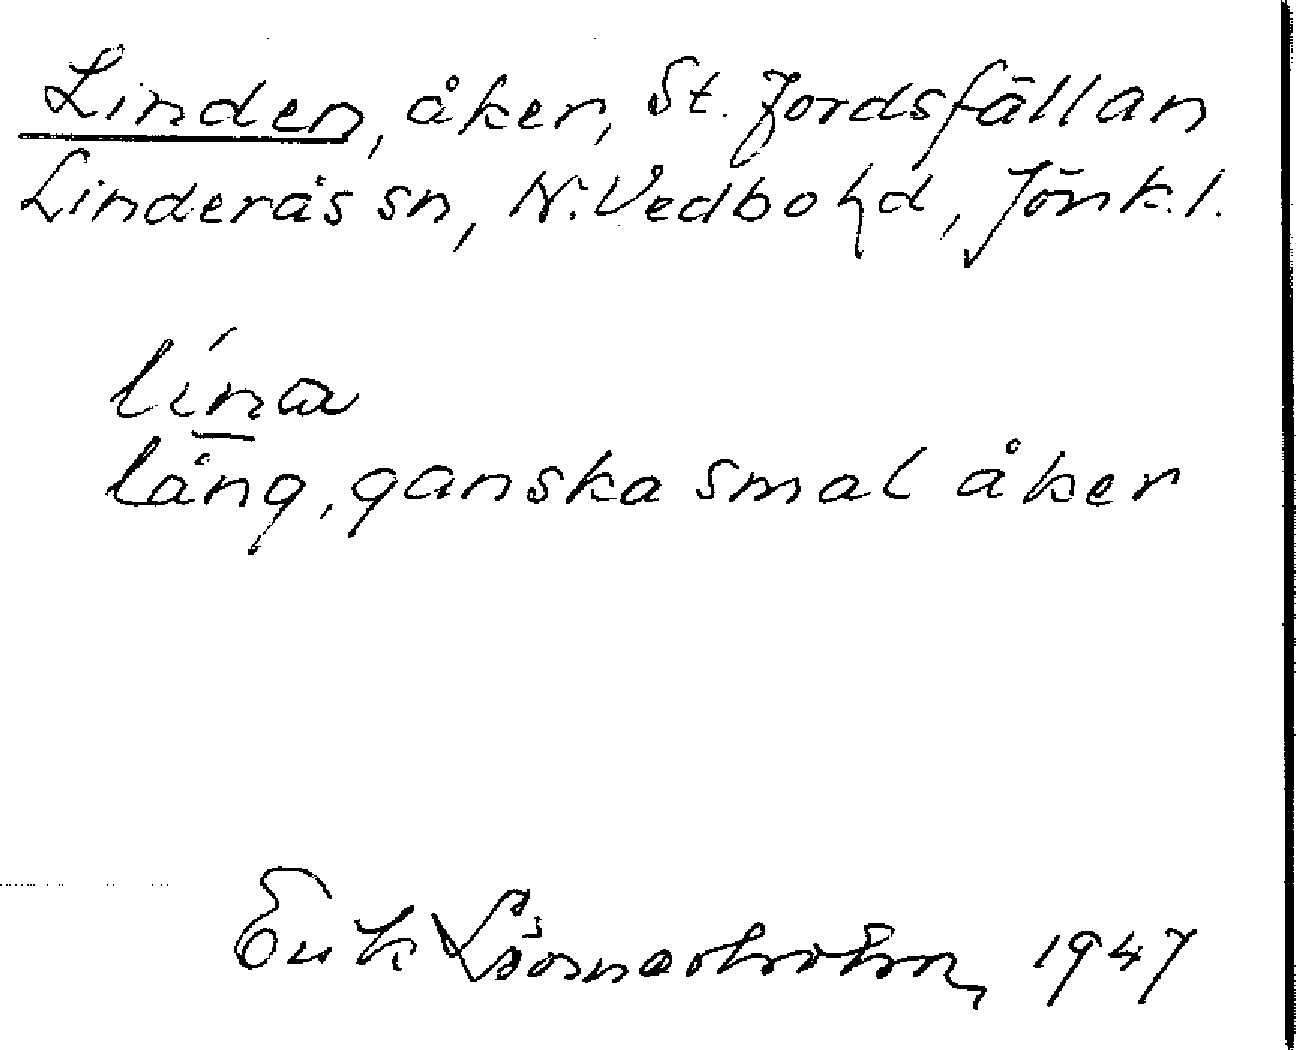 Linden, åker, St. Jordsfällan
Linderås sn, N. Vedbo hd, Jönk. l.
lína
lång, ganska smal åker
Erik 1947